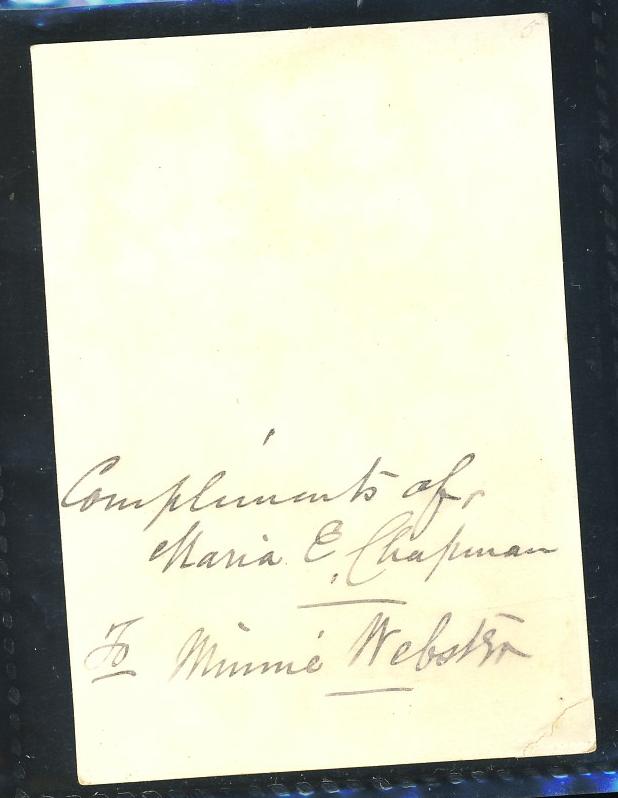 Compliments of,
Maria E, Chapman
To Minnie Webster